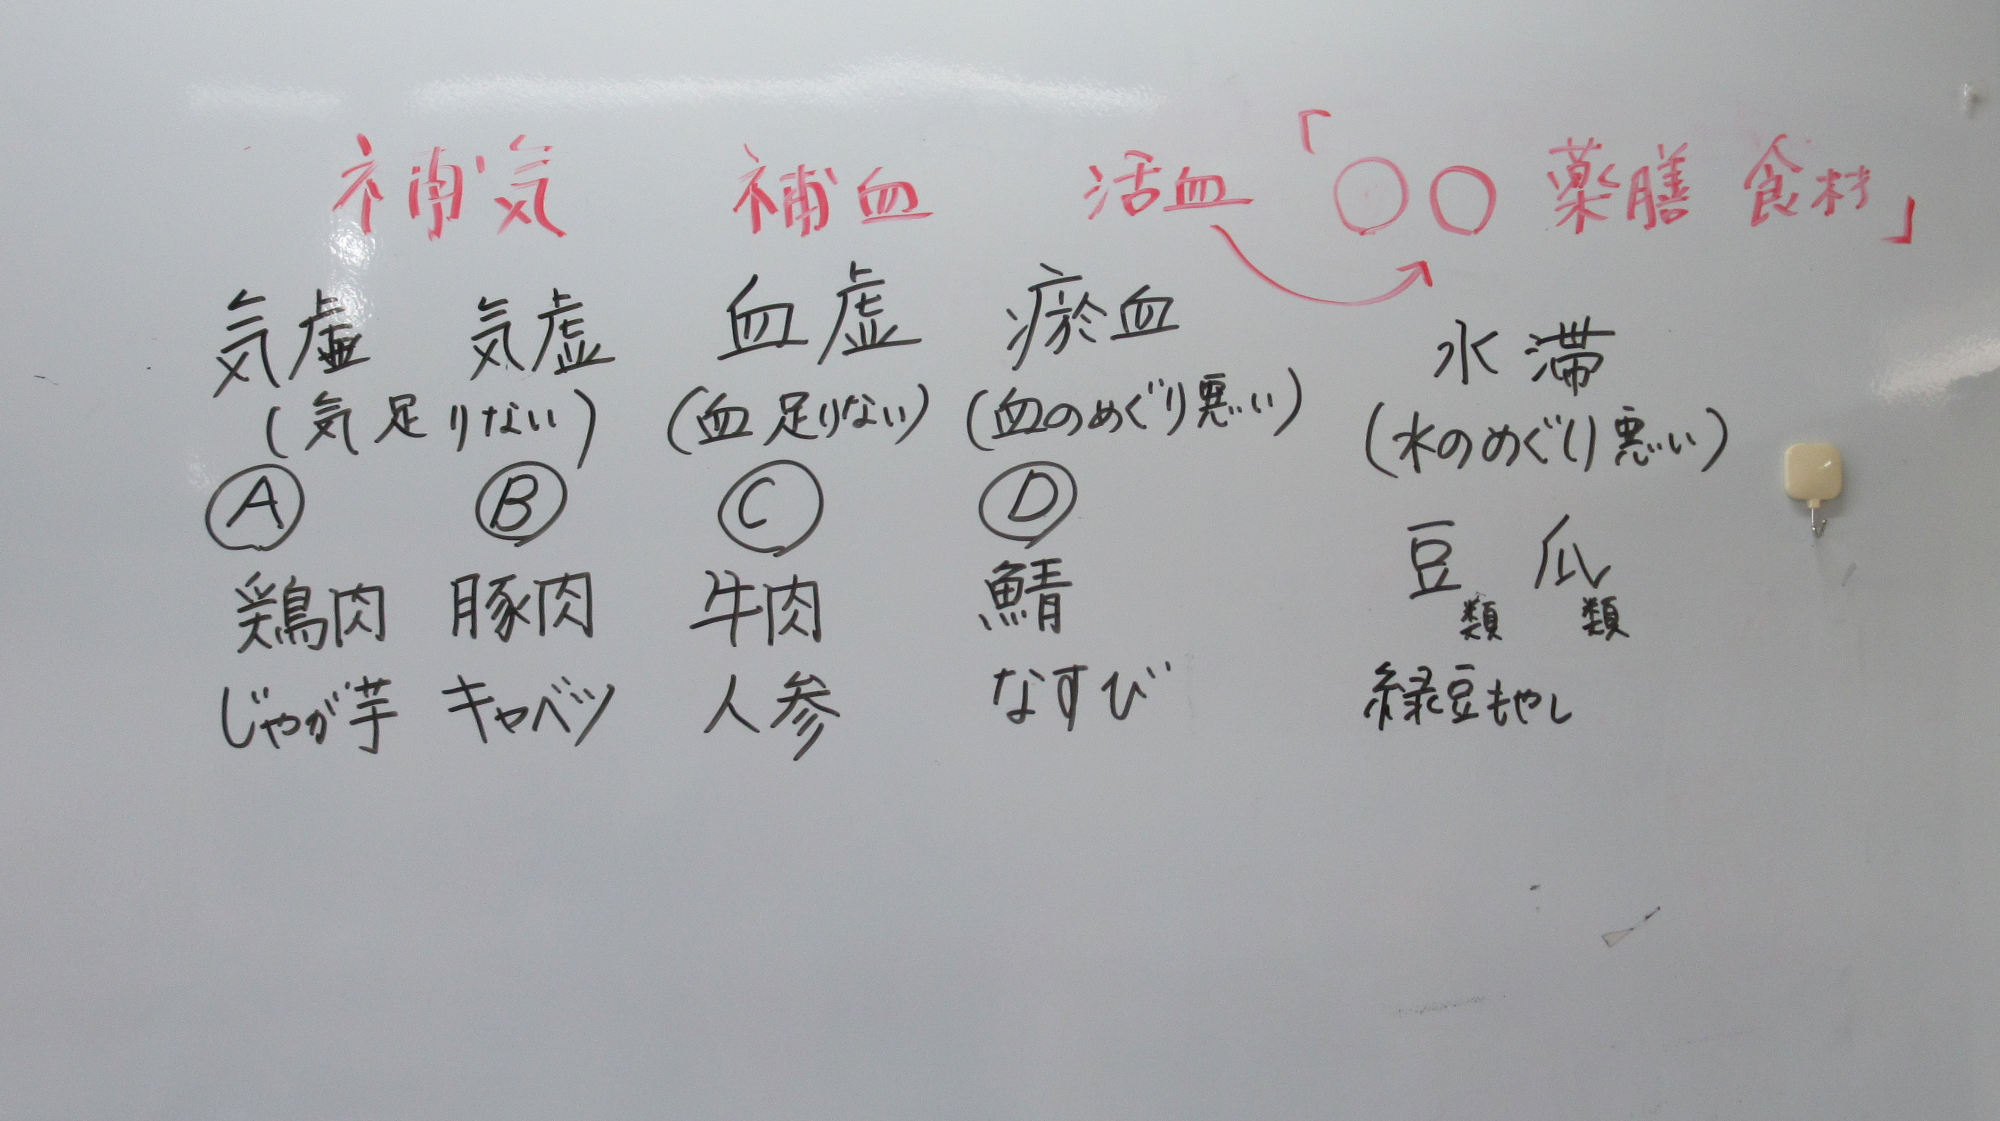 補気 補血 活血 「○○ 薬膳 食材」
気虚 気虚 血虚 瘀血 水滞
(気足りない) (血足りない) (血のめぐり悪い) (水のめぐり悪い)
Ⓐ Ⓑ Ⓒ Ⓓ
豆類 瓜類
鶏肉 豚肉 牛肉 鯖
じゃが芋 キャベツ 人参 なすび 緑豆もやし